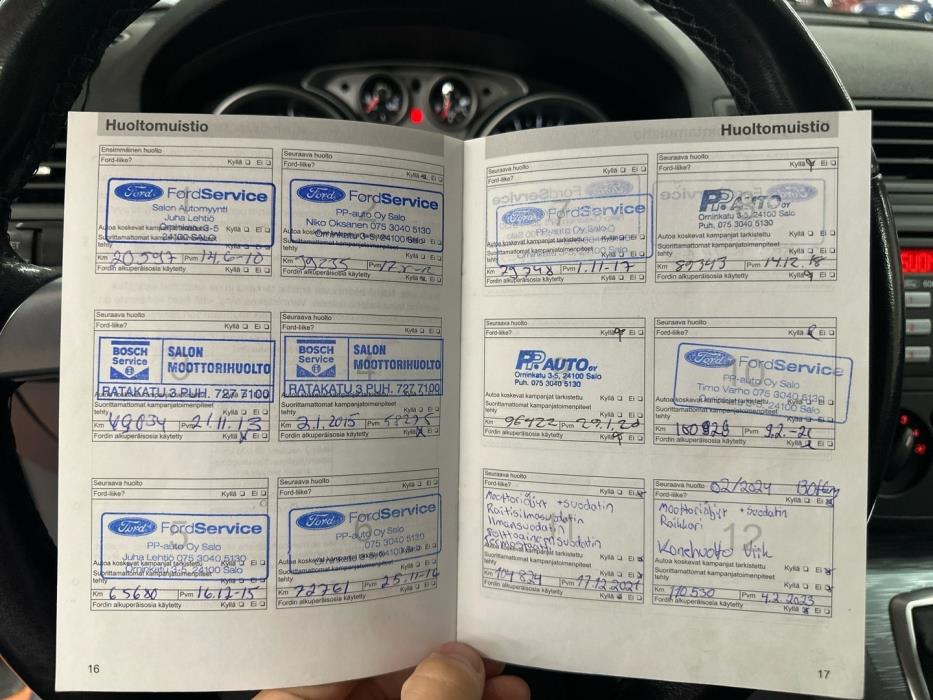 Huoltomuistio
Ensimmäinen huolto
Ford-liike? Kyllä Ei
Ford FordService
Salon Automyynti
Juha Lehtiö
Örninkatu 3-5
24100 SALO
Autoa koskevat kampanjat tarkistettu Kyllä Ei
Suorittamattomat kampanjatoimenpiteet tehty Kyllä Ei
Km 20597 Pvm 14.6-10
Fordin alkuperäisosia käytetty Kyllä Ei
Seuraava huolto
Ford-liike? Kyllä Ei
Ford FordService
PP-auto Oy Salo
Niko Oksanen 075 3040 5130
Örninkatu 3-5, 24100 Salo
Kyllä Ei
Km 39235 Pvm
Fordin alkuperäisosia käytetty Kyllä Ei
Seuraava huolto
Ford-liike? Kyllä Ei
BOSCH Service
SALON
MOOTTORIHUOLTO
RATAKATU 3 PUH. 727 7100
Autoa koskevat kampanjat tarkistettu Kyllä Ei
Suorittamattomat kampanjatoimenpiteet tehty Kyllä Ei
Km 49834 Pvm 21.11.13
Fordin alkuperäisosia käytetty Kyllä Ei
Seuraava huolto
Ford-liike? Kyllä Ei
BOSCH Service
SALON
MOOTTORIHUOLTO
RATAKATU 3 PUH. 727 7100
4
Autoa koskevat kampanjat tarkistettu Kyllä Ei
Suorittamattomat kampanjatoimenpiteet tehty Kyllä Ei
Km 2.1.2015 Pvm 58275
Fordin alkuperäisosia käytetty Kyllä Ei
Seuraava huolto
Ford-liike? Kyllä Ei
Ford FordService
5
PP-auto Oy Salo
Juha Lehtiö 075 3040 5130
Örninkatu 3-5, 24100 Salo
Autoa koskevat kampanjat tarkistettu Kyllä Ei
Suorittamattomat kampanjatoimenpiteet tehty Kyllä Ei
Km 65680 Pvm 16.12-15
Fordin alkuperäisosia käytetty Kyllä Ei
Seuraava huolto
Ford-liike? Kyllä Ei
Ford FordService
6
PP-auto Oy Salo
075 3040 5130
Örninkatu 3-5, 24100 Salo
Autoa koskevat kampanjat tarkistettu Kyllä Ei
Suorittamattomat kampanjatoimenpiteet tehty Kyllä Ei
Km 72761 Pvm 25.11-16
Fordin alkuperäisosia käytetty Kyllä Ei
16
Huoltomuistio
Seuraava huolto
Ford-liike? Kyllä Ei
Ford FordService
PP-auto Oy Salo
Autoa koskevat kampanjat tarkistettu Kyllä Ei
Suorittamattomat kampanjatoimenpiteet tehty Kyllä Ei
Km 79748 Pvm 1.11-17
Fordin alkuperäisosia käytetty Kyllä Ei
Seuraava huolto
Ford-liike? Kyllä Ei
PP AUTO OY
Örninkatu 3-5, 24100 Salo
Puh. 075 3040 5130
Autoa koskevat kampanjat tarkistettu Kyllä Ei
Suorittamattomat kampanjatoimenpiteet tehty Kyllä Ei
Km 87343 Pvm 14.12.18
Fordin alkuperäisosia käytetty Kyllä Ei
Seuraava huolto
Ford-liike? Kyllä Ei
PP AUTO OY
Örninkatu 3-5, 24100 Salo
Puh. 075 3040 5130
Autoa koskevat kampanjat tarkistettu Kyllä Ei
Suorittamattomat kampanjatoimenpiteet tehty Kyllä Ei
Km 96422 Pvm 29.1.20
Fordin alkuperäisosia käytetty Kyllä Ei
Seuraava huolto
Ford-liike? Kyllä Ei
Ford FordService
10
PP-auto Oy Salo
Timo Varho 075 3040 5130
Örninkatu 3-5, 24100 Salo
Autoa koskevat kampanjat tarkistettu Kyllä Ei
Suorittamattomat kampanjatoimenpiteet tehty Kyllä Ei
Km 100828 Pvm 9.2.-21
Fordin alkuperäisosia käytetty Kyllä Ei
Seuraava huolto
Ford-liike? Kyllä Ei
Moottoriöljyt + suodatin
Raitisilmasuodatin
Ilmansuodatin
Polttoaineensuodatin
Autoa koskevat kampanjat tarkistettu Kyllä Ei
Suorittamattomat kampanjatoimenpiteet tehty Kyllä Ei
Km 104824 Pvm 17.12.2021
Fordin alkuperäisosia käytetty Kyllä Ei
Seuraava huolto 02/2024
Ford-liike? Kyllä Ei
Moottoriöljyt + suodatin
12
Autoa koskevat kampanjat tarkistettu Kyllä Ei
Suorittamattomat kampanjatoimenpiteet tehty Kyllä Ei
Km 110530 Pvm 4.2.2023
Fordin alkuperäisosia käytetty Kyllä Ei
17